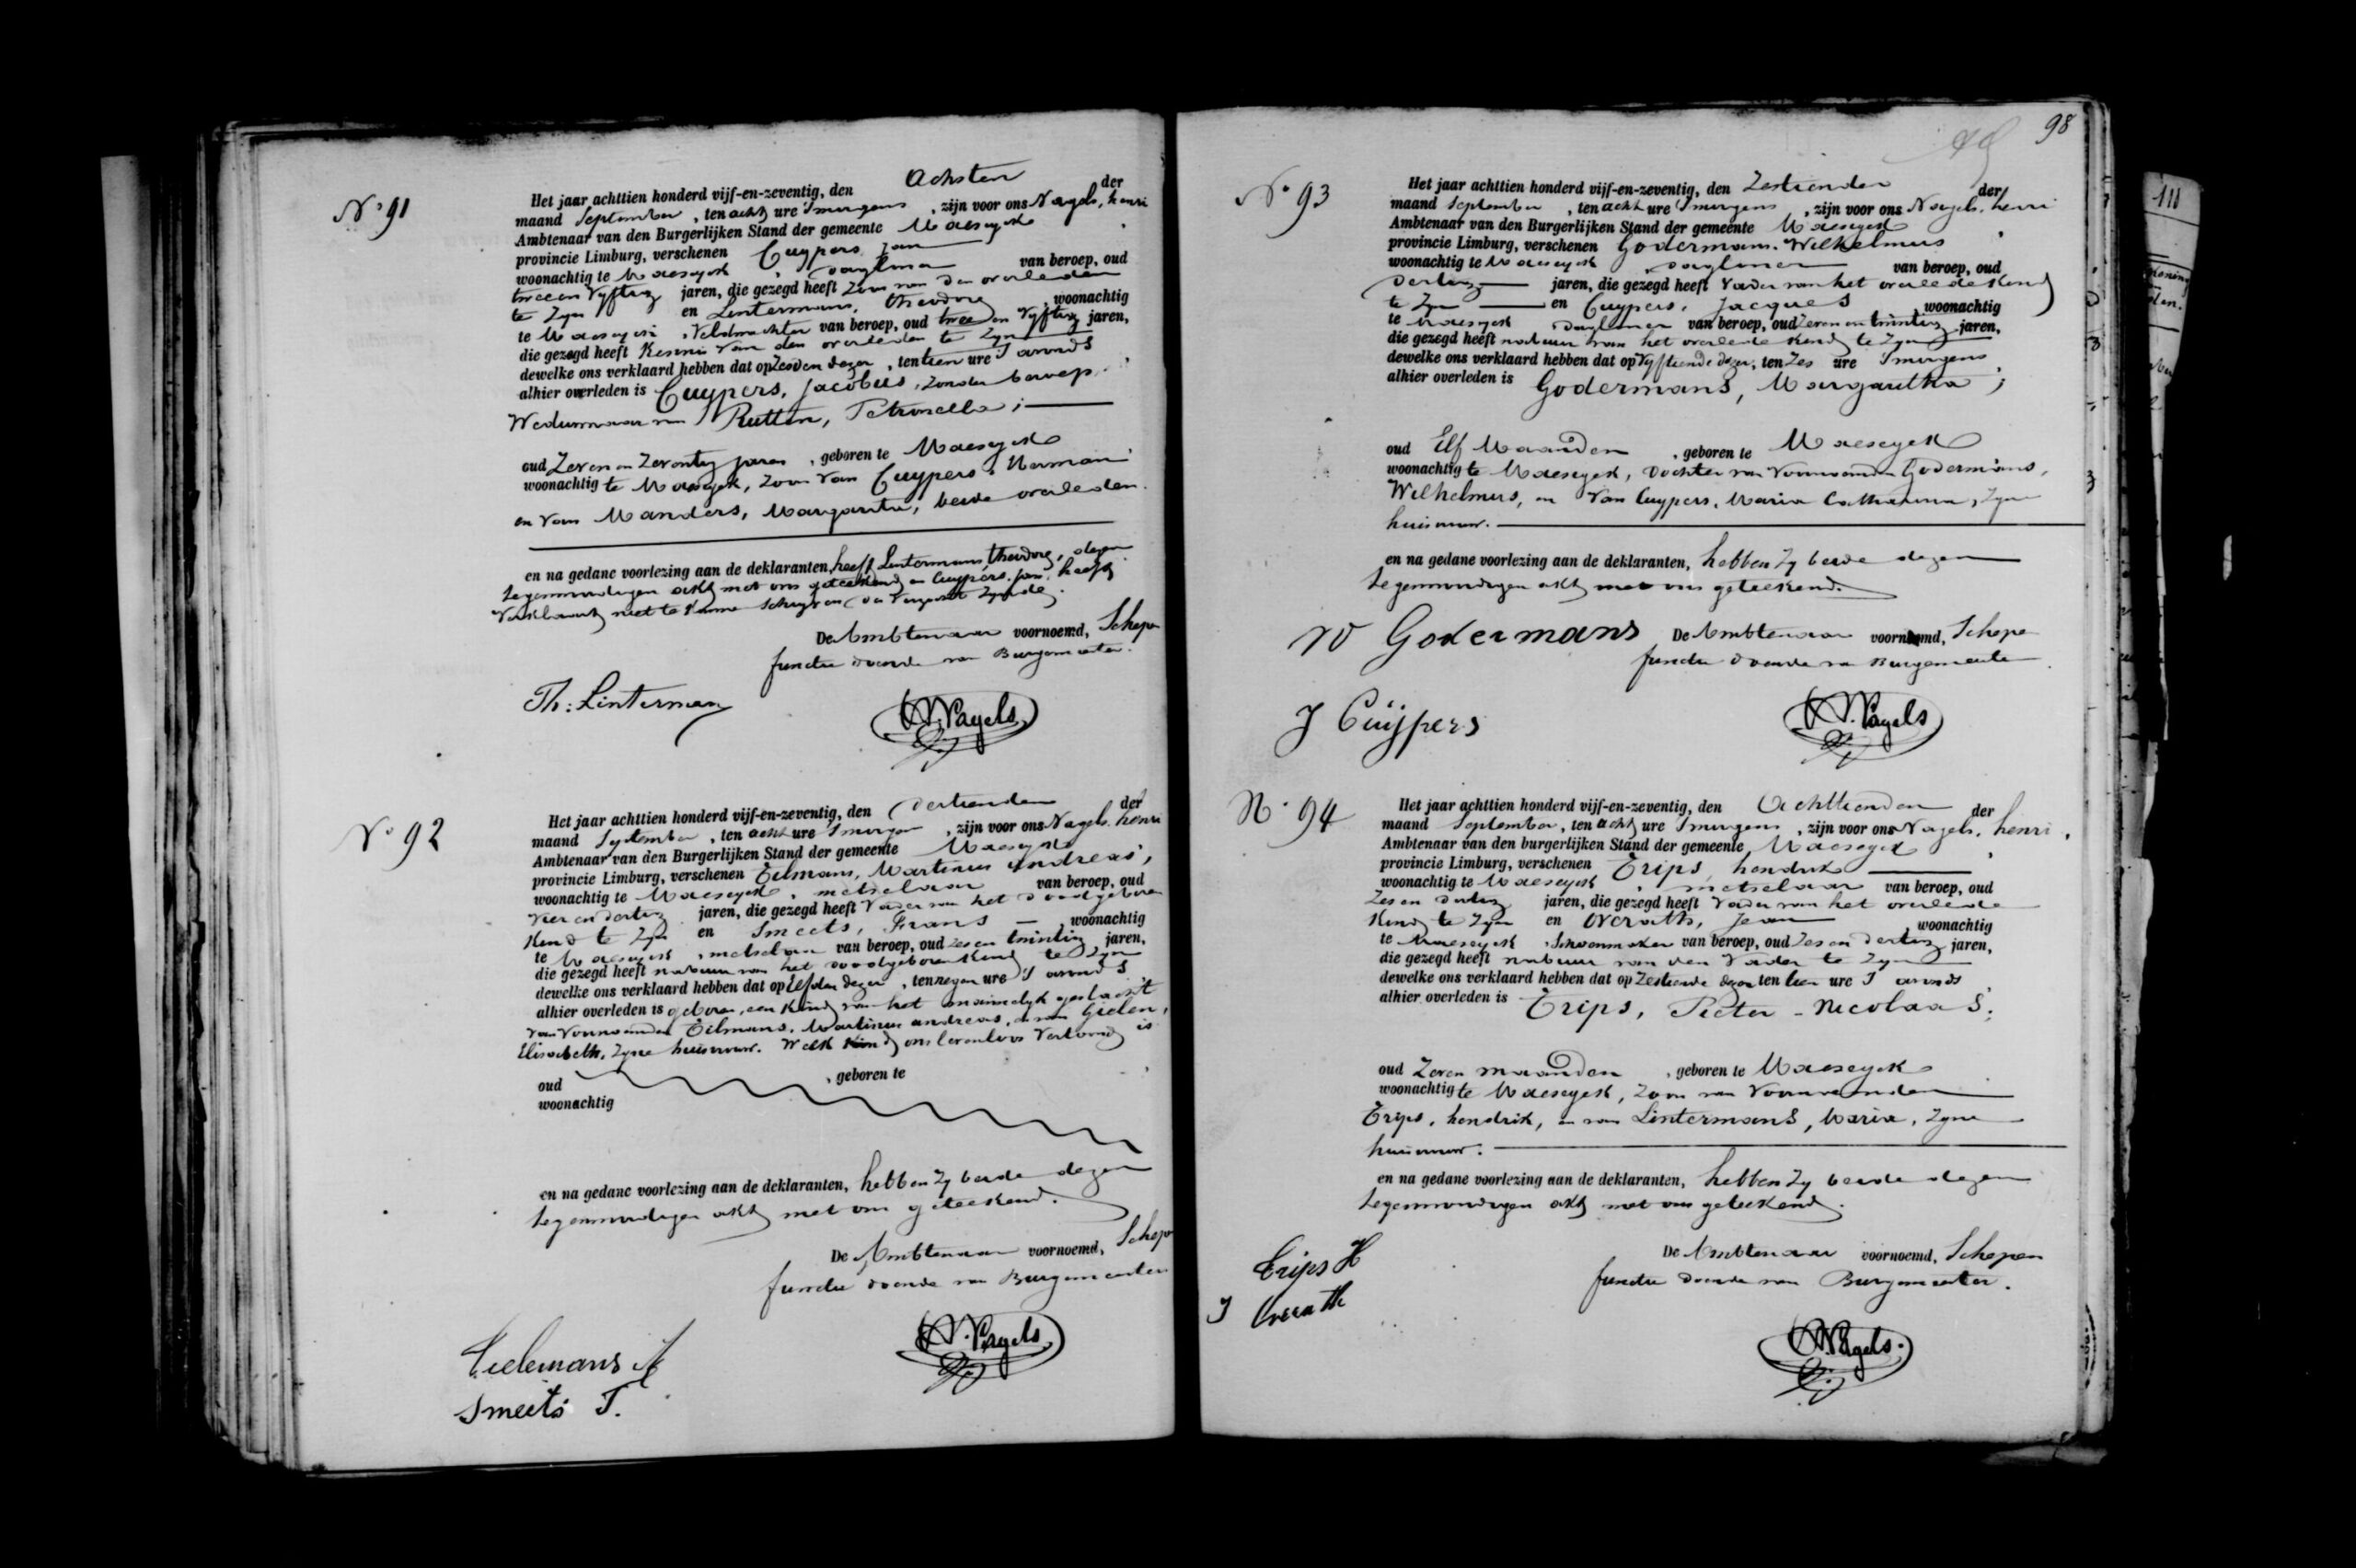 N° 91
Het jaar achttien honderd vijf-en-zeventig, den Achsten der
maand September, ten acht ure Smorgens, zijn voor ons Nagels, henri
Ambtenaar van den Burgerlijken Stand der gemeente Maeseyck
provincie Limburg, verschenen Cuypers Jan
woonachtig te Maeseyck, daglner van beroep, oud
tweeen Vyftig jaren, die gezegd heeft Zoon van den overleden
te Zyn en Lintermans, theodore, woonachtig
te Maeseyck, Veldwachter van beroep, oud twee en Vyftig jaren,
die gezegd heeft Kennis van den overleden te Zyn
dewelke ons verklaard hebben dat op Zesden dezer, ten tien ure S avonds
alhier overleden is Cuypers, Jacobus, Zonder beroep.
Weduwnaar van Rutten, Petronella;
oud Zeven en Zeventig jaren, geboren te Maeseyck
woonachtig te Maeseyck, Zoon Van Cuypers, Herman
en van Manders, Margaritha, beide overleden.
en na gedane voorlezing aan de deklaranten, heeft Lintermans theodore, dezen
tegenwoordigen akt met ons geteekend en Cuypers, jan, heeft
Verklaard niet te Kunnen Schryven
De Ambtenaar voornoemd, Schepen
functie doende van Burgemeester.
Th: Linterman
H. Nagels
N° 92
Het jaar achttien honderd vijf-en-zeventig, den dertienden der
maand September, ten acht ure Smorgens, zijn voor ons Nagels. henri
Ambtenaar van den Burgerlijken Stand der gemeente Maeseyck
provincie Limburg, verschenen Tilmans, Martinus andreas,
woonachtig te Maeseyck, metselaar van beroep, oud
Vier en dertig jaren, die gezegd heeft Vader van het doodgeboren
Kind te Zyn en Smeets, Frans, woonachtig
te Maeseyck, metselaar van beroep, oud Zes en twintig jaren,
die gezegd heeft nabuur van het doodgeboren Kind te Zyn
dewelke ons verklaard hebben dat op Elfden dezer, ten negen ure S avonds
alhier overleden is geboren, een Kind van het mannelyk geslacht
van Voornoemden Tilmans, Martinus andreas, en van Gielen,
Elisabeth, Zyne huisvrouw. Welk Kind ons levenloos Vertoond is
oud , geboren te
woonachtig
en na gedane voorlezing aan de deklaranten, hebben Zy beide dezen
tegenwoordigen akt met ons geteekend.
De Ambtenaar voornoemd, Schepen
functie doende van Burgemeester
Tielemans M
Smeets F.
H. Nagels
98
N° 93
Het jaar achttien honderd vijf-en-zeventig, den Zestienden der
maand September, ten acht ure Smorgens, zijn voor ons Nagels, henri
Ambtenaar van den Burgerlijken Stand der gemeente Maeseyck
provincie Limburg, verschenen Godermans. Wilhelmus
woonachtig te Maeseyck, daglner van beroep, oud
dertig jaren, die gezegd heeft Vader van het overledekind
te Zyn en Cuypers, Jacques, woonachtig
te Maeseyck daglner van beroep, oud Zeven en twintig jaren,
die gezegd heeft nabuur van het overlede Kind te Zyn
dewelke ons verklaard hebben dat op Vyftiende dezer, ten Zes ure Smorgens
alhier overleden is Godermans, Margaritha;
oud Elf Maanden, geboren te Maeseyck
woonachtig te Maeseyck, dochter van Voornoemden Godermans,
Wilhelmus, en Van Cuypers, Maria Catharina, Zyne
huisvrouw.
en na gedane voorlezing aan de deklaranten, hebben Zy beide dezen
tegenwoordigen akt met ons geteekend.
W Godermans De Ambtenaar voornoemd, Schepen
functie doende van Burgemeester
J Cuijpers
H. Nagels
N° 94
Het jaar achttien honderd vijf-en-zeventig, den Achttienden der
maand September, ten acht ure Smorgens, zijn voor ons Nagels, henri,
Ambtenaar van den burgerlijken Stand der gemeente Maeseyck
provincie Limburg, verschenen Trips, hendrik
woonachtig te Maeseyck, metselaar van beroep, oud
Zes en dertig jaren, die gezegd heeft Vader van het overlede
Kind te Zyn en Overath, Jean, woonachtig
te Maeseyck, Schoenmaker van beroep, oud Zes en dertig jaren,
die gezegd heeft nabuur van den Vader te Zyn
dewelke ons verklaard hebben dat op Zestiende dezer ten tien ure S avonds
alhier overleden is Trips, Pieter-Nicolaas;
oud Zeven maanden, geboren te Maeseyck
woonachtig te Maeseyck, Zoon van Voornoemden
Trips, hendrik, en van Lintermans, Maria, Zyne
huisvrouw.
en na gedane voorlezing aan de deklaranten, hebben Zy beide dezen
tegenwoordigen akt met ons geteekend.
De Ambtenaar voornoemd, Schepen
functie doende van Burgemeester.
Trips H
J Overath
H. Nagels.
111